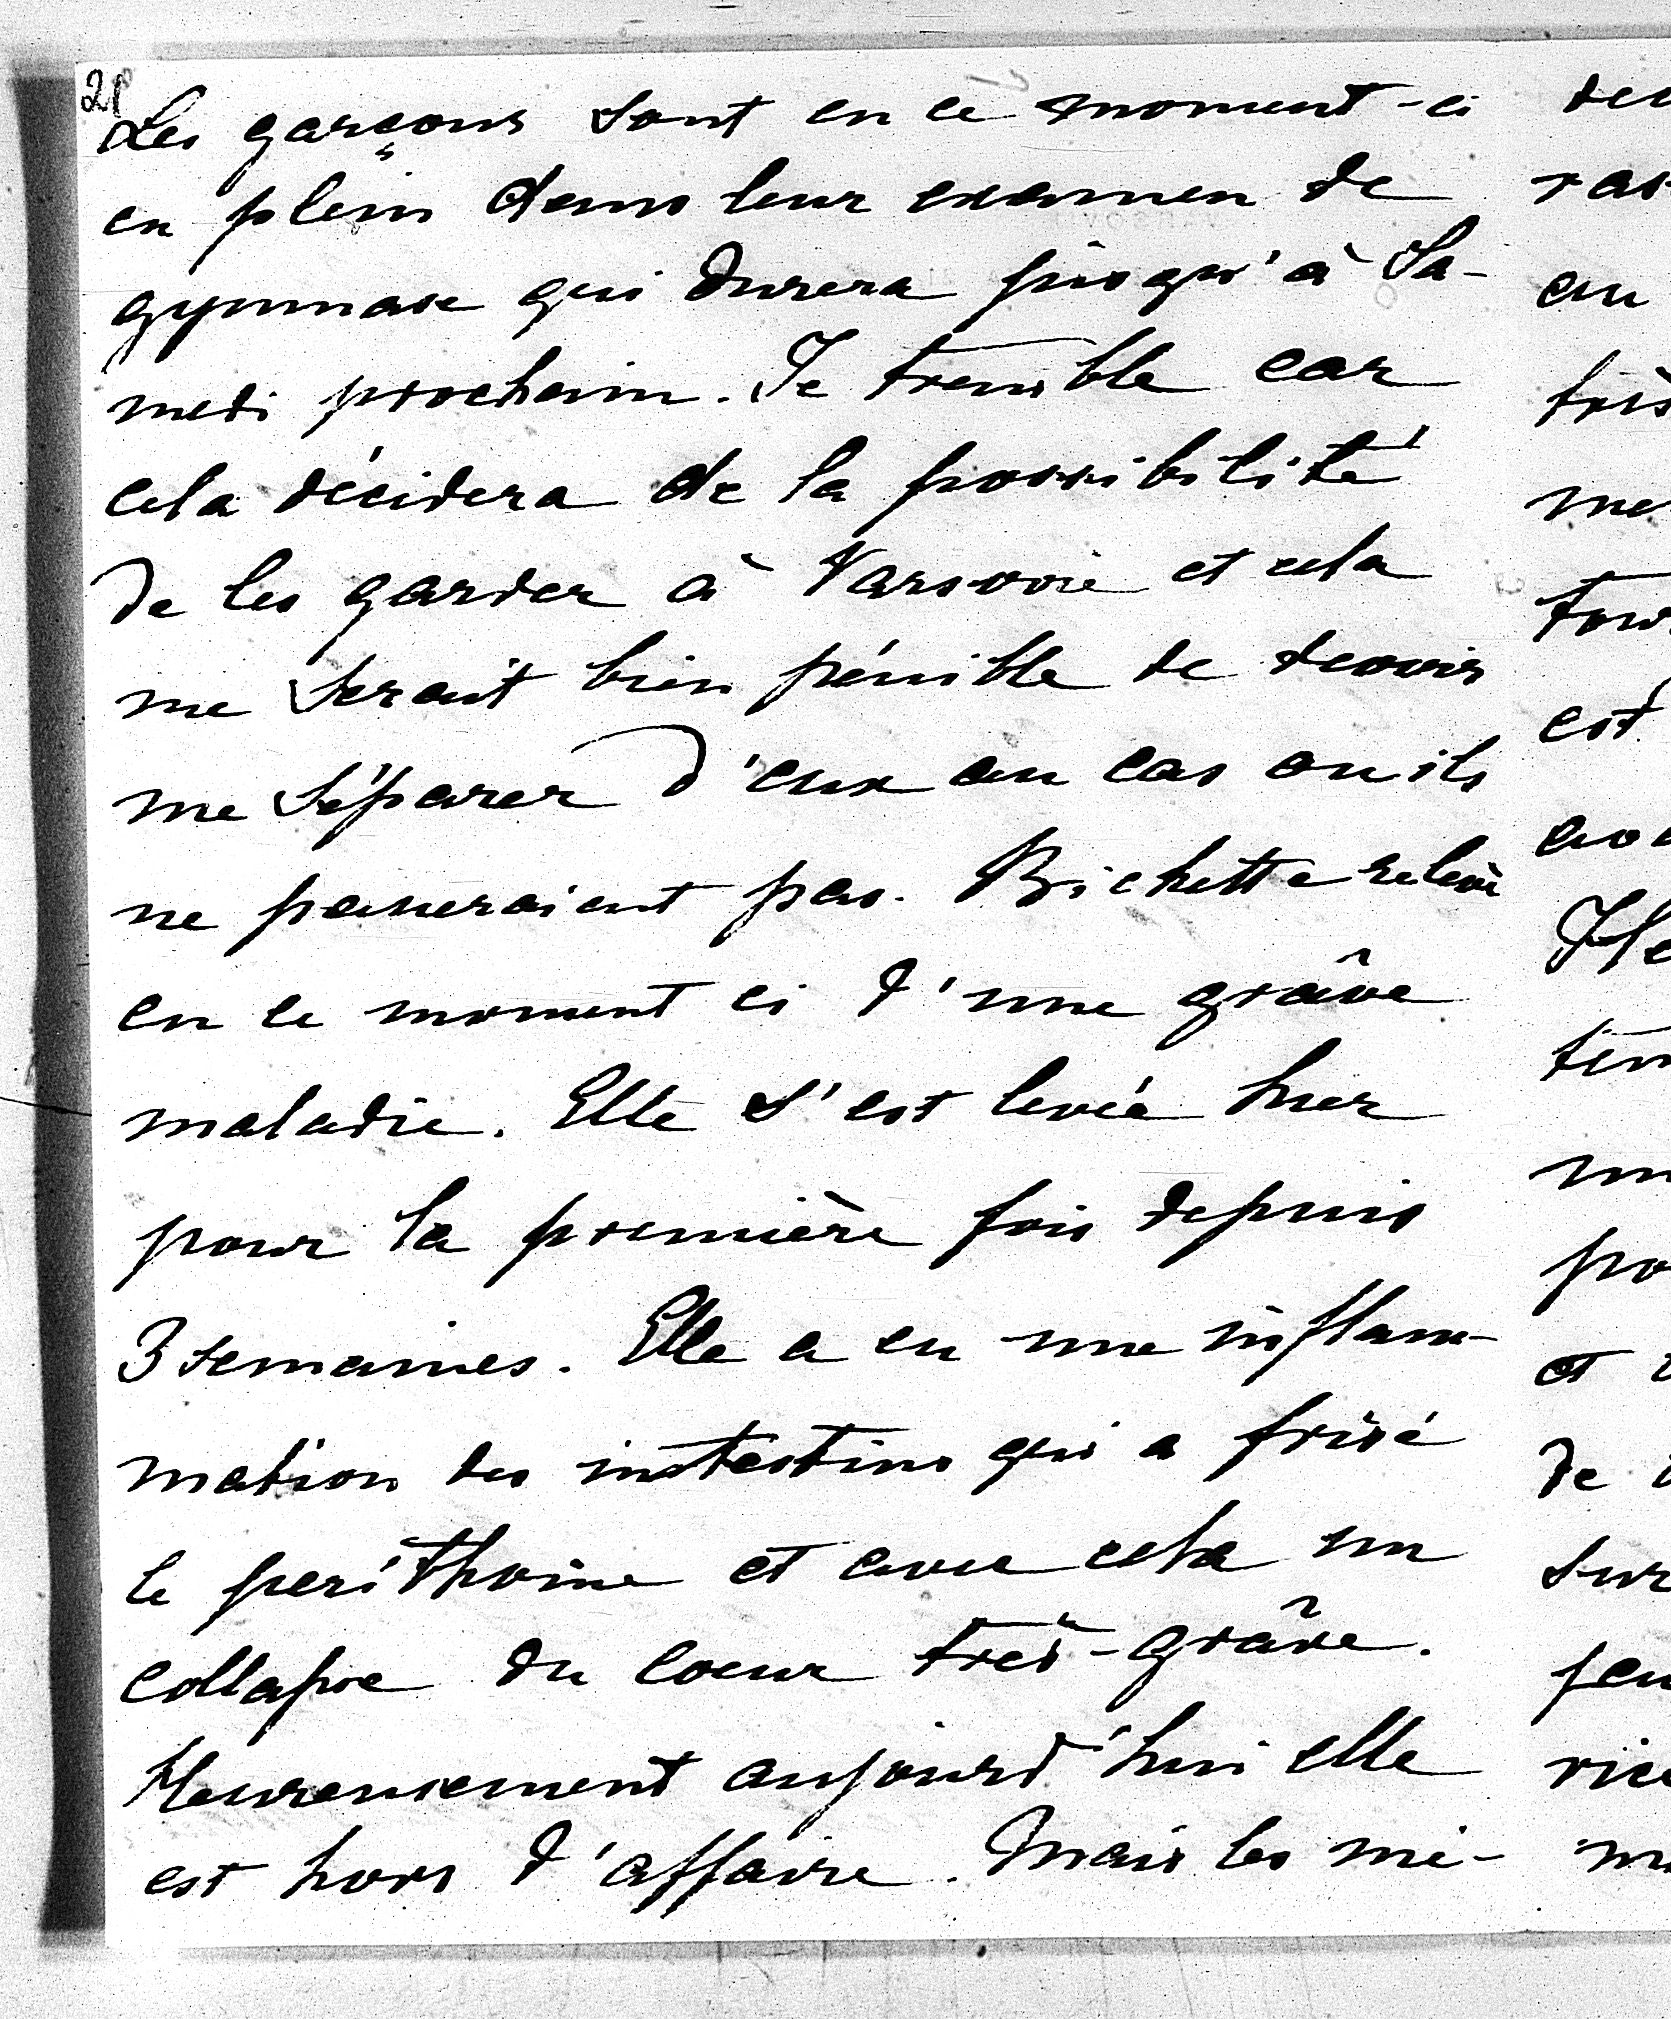 2)
Les garçons sont en ce moment-ci
en plein dans leur examen de
gymnase qui durera jusqu'à Sa-
medi prochain. Je tremble car
cela décidera de la possibilité
de les garder à Varsovie et cela
me serait bien pénible de devoir
me séparer d'eux au cas ou ils
ne passeraient pas. Bichette relève
en ce moment ci d'une grâve
maladie. Elle s'est levée hier
pour la première fois depuis
3 semaines. Elle a eu une inflam-
mation des intestins qui a frisé
le périthoine et avec cela un
collapse du coeur très-grâve.
Heureusement aujourd'hui elle
est hors d'affaire. Mais les mé-
très
est
et
de